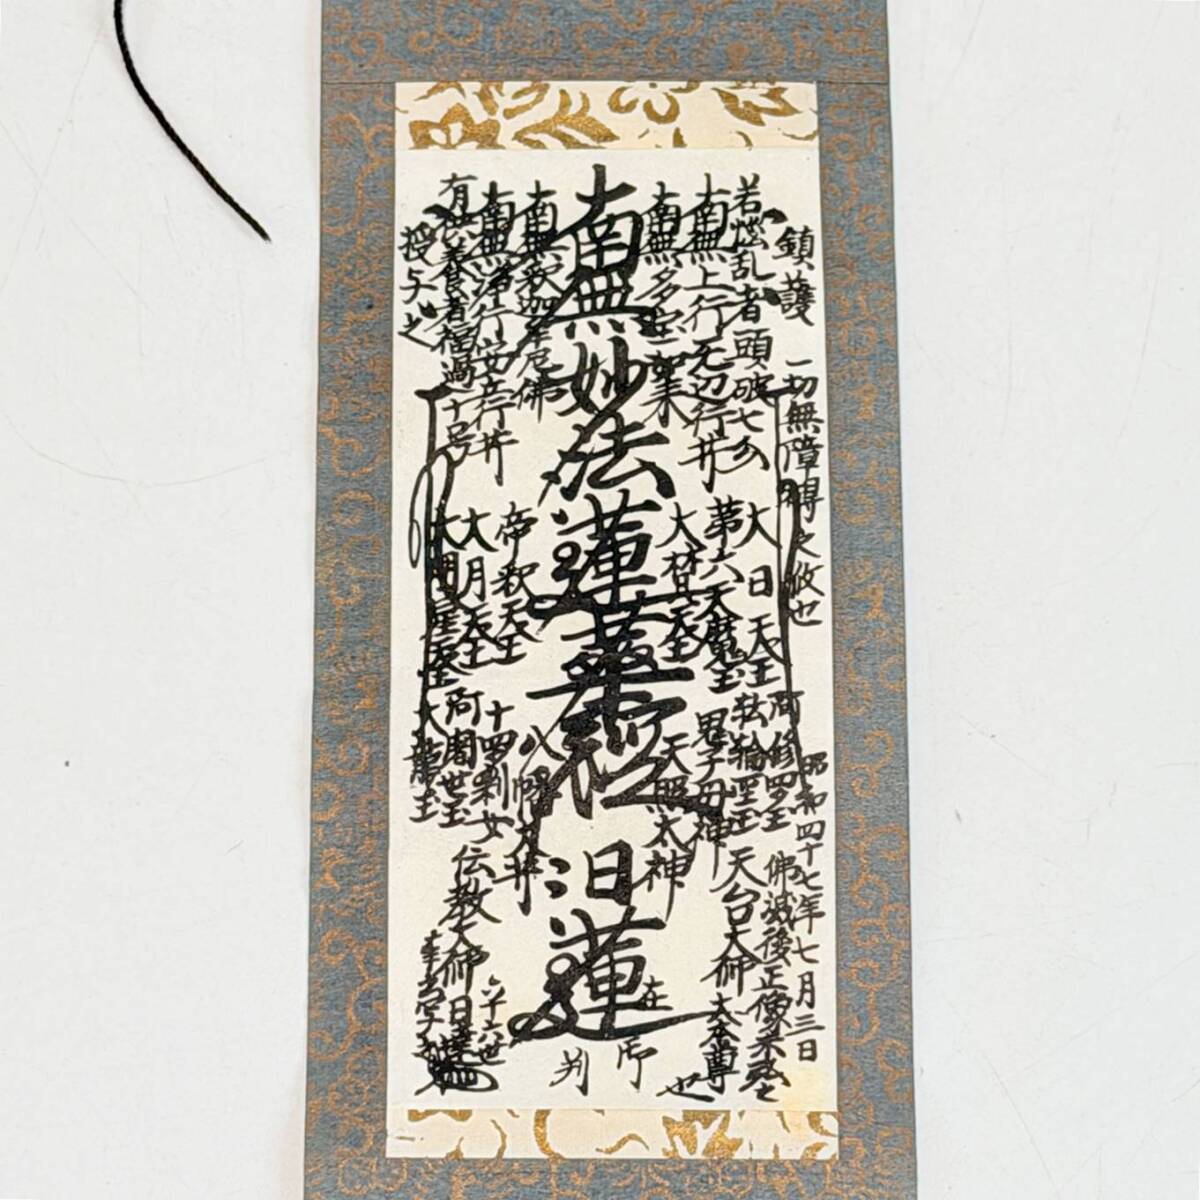 鎮護
一切無障碍之攸也
昭和四十七年七月三日
若悩乱者頭破七分
大日天王
阿修羅王
転輪聖王
佛滅後正像未弘之
大本尊也
南無上行无辺行井
第六天魔王
鬼子母神
天台大師
南無多宝如来
大梵天王
天照太神
南無妙法蓮華経
日蓮
在御判
南無釈迦牟尼佛
帝釈天王
八幡大井
南無浄行安立行井
大月天王
十四刹女
六十六世
有供養者福過十号
大明星天王
阿闍世王
伝教大師
日達
大龍王
授与之